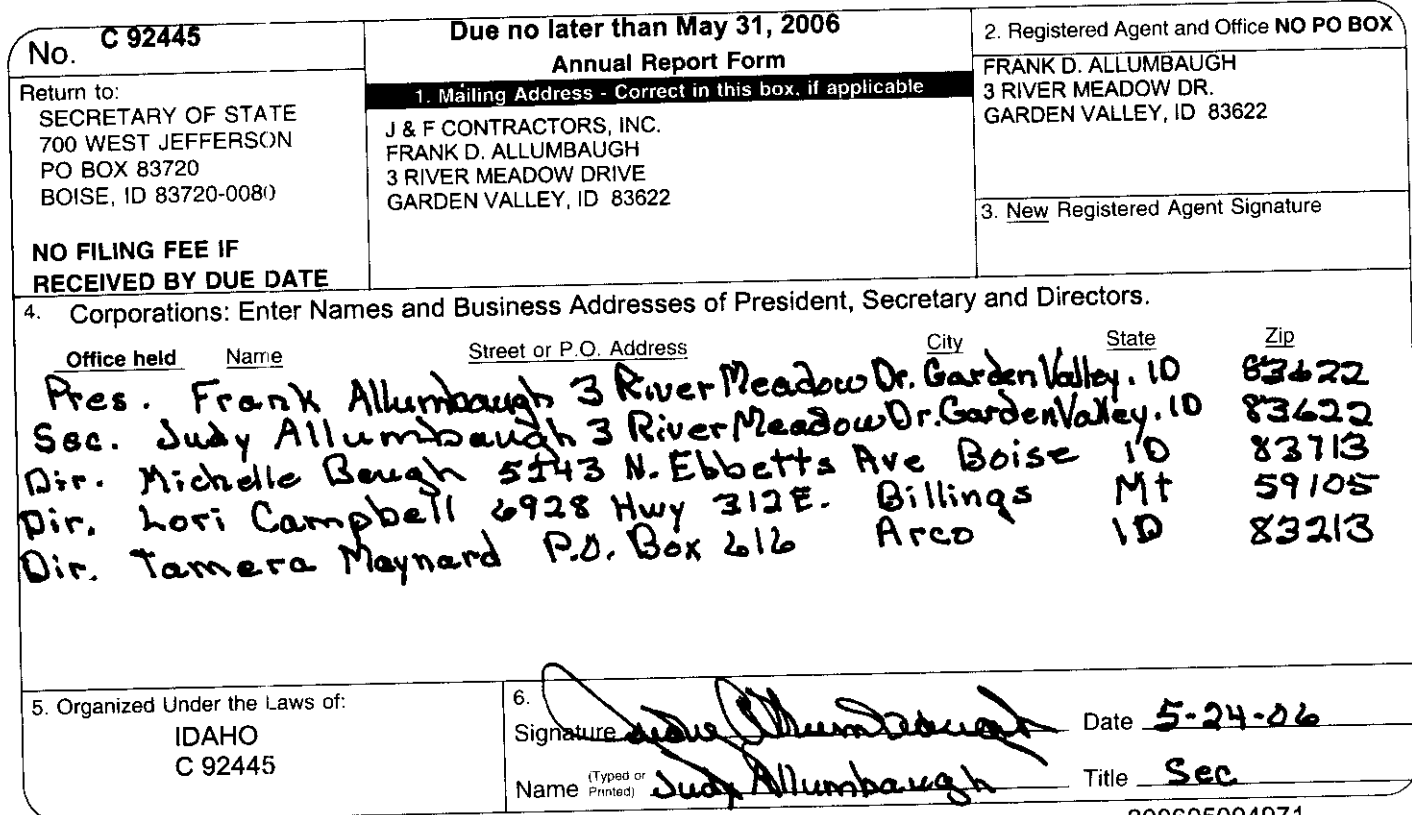 No. C 92445
Return to:
SECRETARY OF STATE
700 WEST JEFFERSON
PO BOX 83720
BOISE, ID 83720-0080
NO FILING FEE IF
RECEIVED BY DUE DATE
Due no later than May 31, 2006
Annual Report Form
1. Mailing Address - Correct in this box, if applicable
J & F CONTRACTORS, INC.
FRANK D. ALLUMBAUGH
3 RIVER MEADOW DRIVE
GARDEN VALLEY, ID 83622
2. Registered Agent and Office NO PO BOX
FRANK D. ALLUMBAUGH
3 RIVER MEADOW DR.
GARDEN VALLEY, ID 83622
3. New Registered Agent Signature
4. Corporations: Enter Names and Business Addresses of President, Secretary and Directors.
Office held Name Street or P.O. Address City State Zip
Pres. Frank Allumbaugh 3 River Meadow Dr. Garden Valley. ID 83622
Sec. Judy Allumbaugh 3 River Meadow Dr. Garden Valley. ID 83622
Dir. Michelle Baugh 5143 N. Ebbetts Ave Boise ID 83713
Dir. Lori Campbell 6928 Hwy 312 E. Billings Mt 59105
Dir. Tamera Maynard P.O. Box 616 Arco ID 83213
5. Organized Under the Laws of:
IDAHO
C 92445
6.
Signature Judy Allumbaugh Date 5-24-06
Name (Typed or Printed) Judy Allumbaugh Title Sec